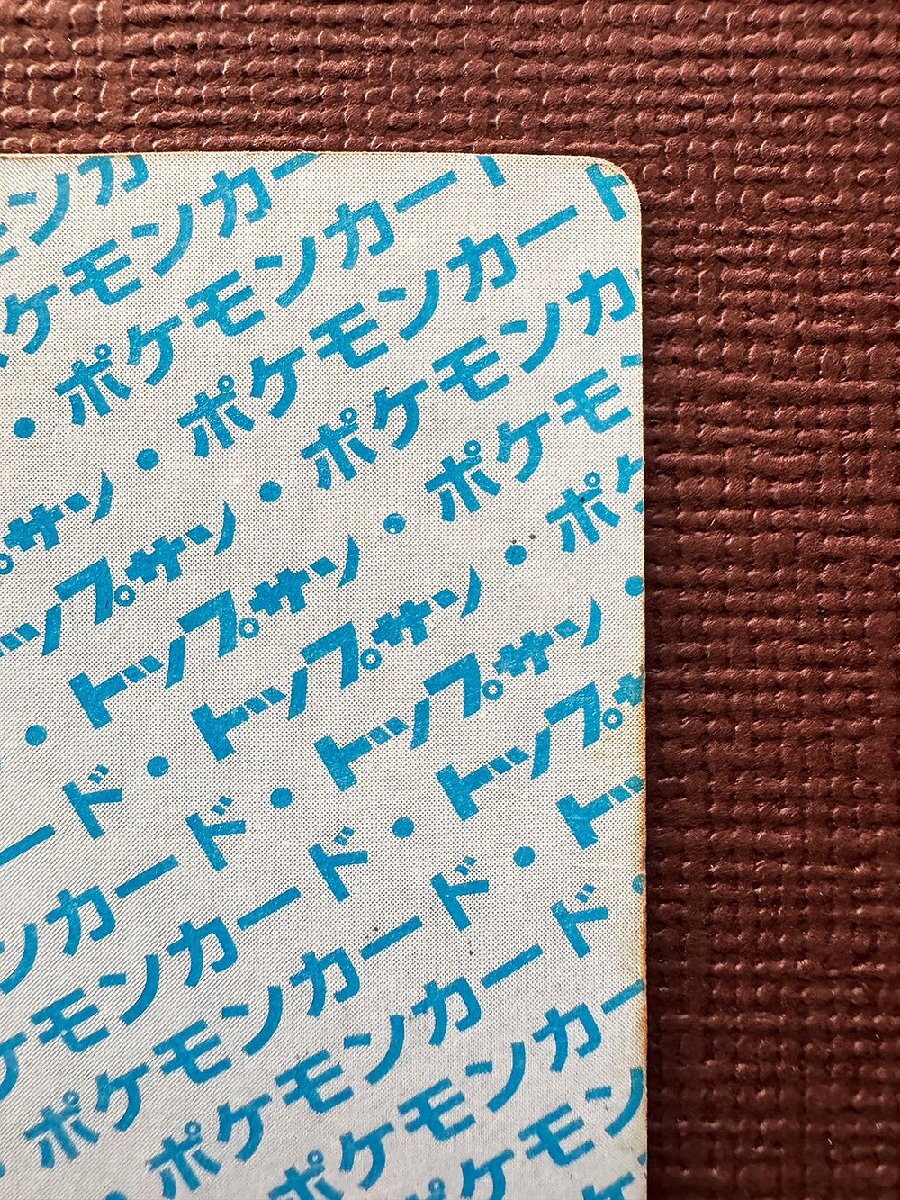 ンカ
ケモンカー
・ポケモンカー
サン・ポケモンカード
ップサン・ポケモンカ
・トップサン・ポケモ
ード・トップサン・ポ
ンカード・トップサン・
ケモンカード・トップサ
・ポケモンカード・トッ
・ポケモンカード・
ポケモンカー
ポケモン